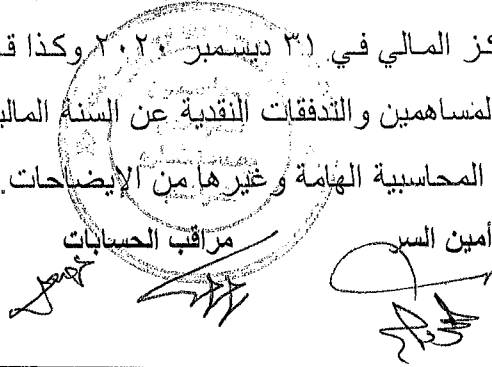 كز المالي في ٣١ ديسمبر ٢٠٢٠ وكذا قـ
لمساهمين والتدفقات النقدية عن السنة المالي
المحاسبية الهامة وغيرها من الإيضاحات.
أمين السر مراقب الحسابات